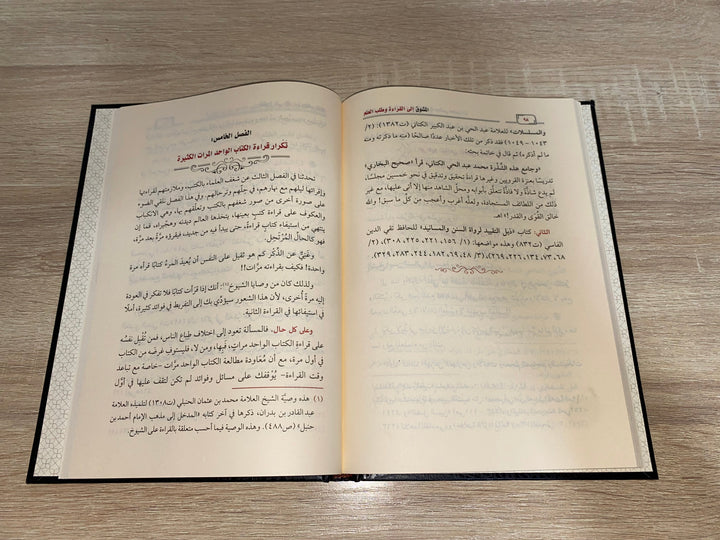 ٩٨
المشوق إلى القراءة وطلب العلم
والمسلسلات» للعلامة عبد الحي بن عبد الكبير الكتاني (ت١٣٨٢): (٢/
١٠٤٣ – ١٠٤٩) فقد ذكر من تلك الأخبار عددًا صالحًا (منه ما ذكرته ومنه
ما لم أذكره) ثم قال في خاتمة بحثه:
«وجامع هذه الشَّذْرة محمد عبد الحي الكتاني، قرأ «صحيح البخاري»
تدريسًا بعنزة القرويين وغيرها قراءةَ تحقيق وتدقيق في نحو خمسين مجلسًا،
لم يدع شاذَّة ولا فاذَّة تتعلَّق بأبوابه ومحلِّ الشاهد منها إلا أتى عليها، مع غير
ذلك من اللطائف المستجادة، ولعلَّه أغرب وأعجب من كل ما سبق! والله
خالق القُوَى والقُدَر!» اهـ.
الثاني: كتاب «ذيل التقييد لرواة السنن والمسانيد» للحافظ تقي الدين
الفاسي (ت٨٣٢) وهذه مواضعها: (١/ ١٥٦، ٢٢١، ٢٢٥، ٣٠٨)، (٢/
٦٨، ٧٣، ١٣٤، ٢٢٦، ٢٦٩)، (٣/ ٤٨، ٦٩، ١٨٢، ٢٤٤، ٢٨٣، ٣٢٩).
الفصل الخامس:
تكرار قراءة الكتاب الواحد المرات الكثيرة
تحدثنا في الفصل الثالث عن شغف العلماء بالكتب، وملازمتهم لقراءتها
وإقرائها ليلهم مع نهارهم، في حِلِّهم وترحالهم. وفي هذا الفصل نلقي الضوء
على صورة أخرى من صور شغفهم بالكتب وتعلُّقهم بها، وهي الانكباب
والعكوف على قراءة كتبٍ بعينها، يتخذها العالم ديدنه وهجيراه، فما إن
ينتهي من استيفاء كتابٍ قراءةً، حتى يبدأ فيه من جديد، فيقرؤه مرَّةً بعد مرَّة،
فهو كالحالِّ المُرْتَحِل.
وغَنِيٌّ عن الذِّكْر كم هو ثقيل على النفس أن يُعيدَ المَرءُ كتابًا قرأه مرة
واحدة! فكيف بقراءته مرَّات!!
ولذلك كان من وصايا الشيوخ(١): أنك إذا قرأت كتابًا فلا تفكر في العودة
إليه مرةً أخرى، لأن هذا الشعور سيؤدِّي بك إلى التفريط في فوائد كثيرة، أملًا
في استيفائها في القراءة الثانية.
وعلى كل حالٍ، فالمسألة تعود إلى اختلاف طباع الناس، فمن تُقْبِل نفسُه
على قراءةِ الكتاب الواحد مراتٍ، فَبِها، ومن لا، فليستوفِ غرضه من الكتاب
في أول مرة، مع أن مُعَاودة مطالعة الكتاب الواحد مرَّات – خاصة مع تباعد
وقت القراءة – يُوْقفك على مسائل وفوائد لم تكن لتقف عليها في أوَّل
(١) هذه وصيَّة الشيخ العلامة محمد بن عثمان الحنبلي (ت١٣٠٨) لتلميذه العلامة
عبد القادر بن بدران، ذكرها في آخر كتابه «المدخل إلى مذهب الإمام أحمد بن
حنبل» (ص٤٨٨). وهذه الوصية فيما أحسب متعلقة بالقراءة على الشيوخ.